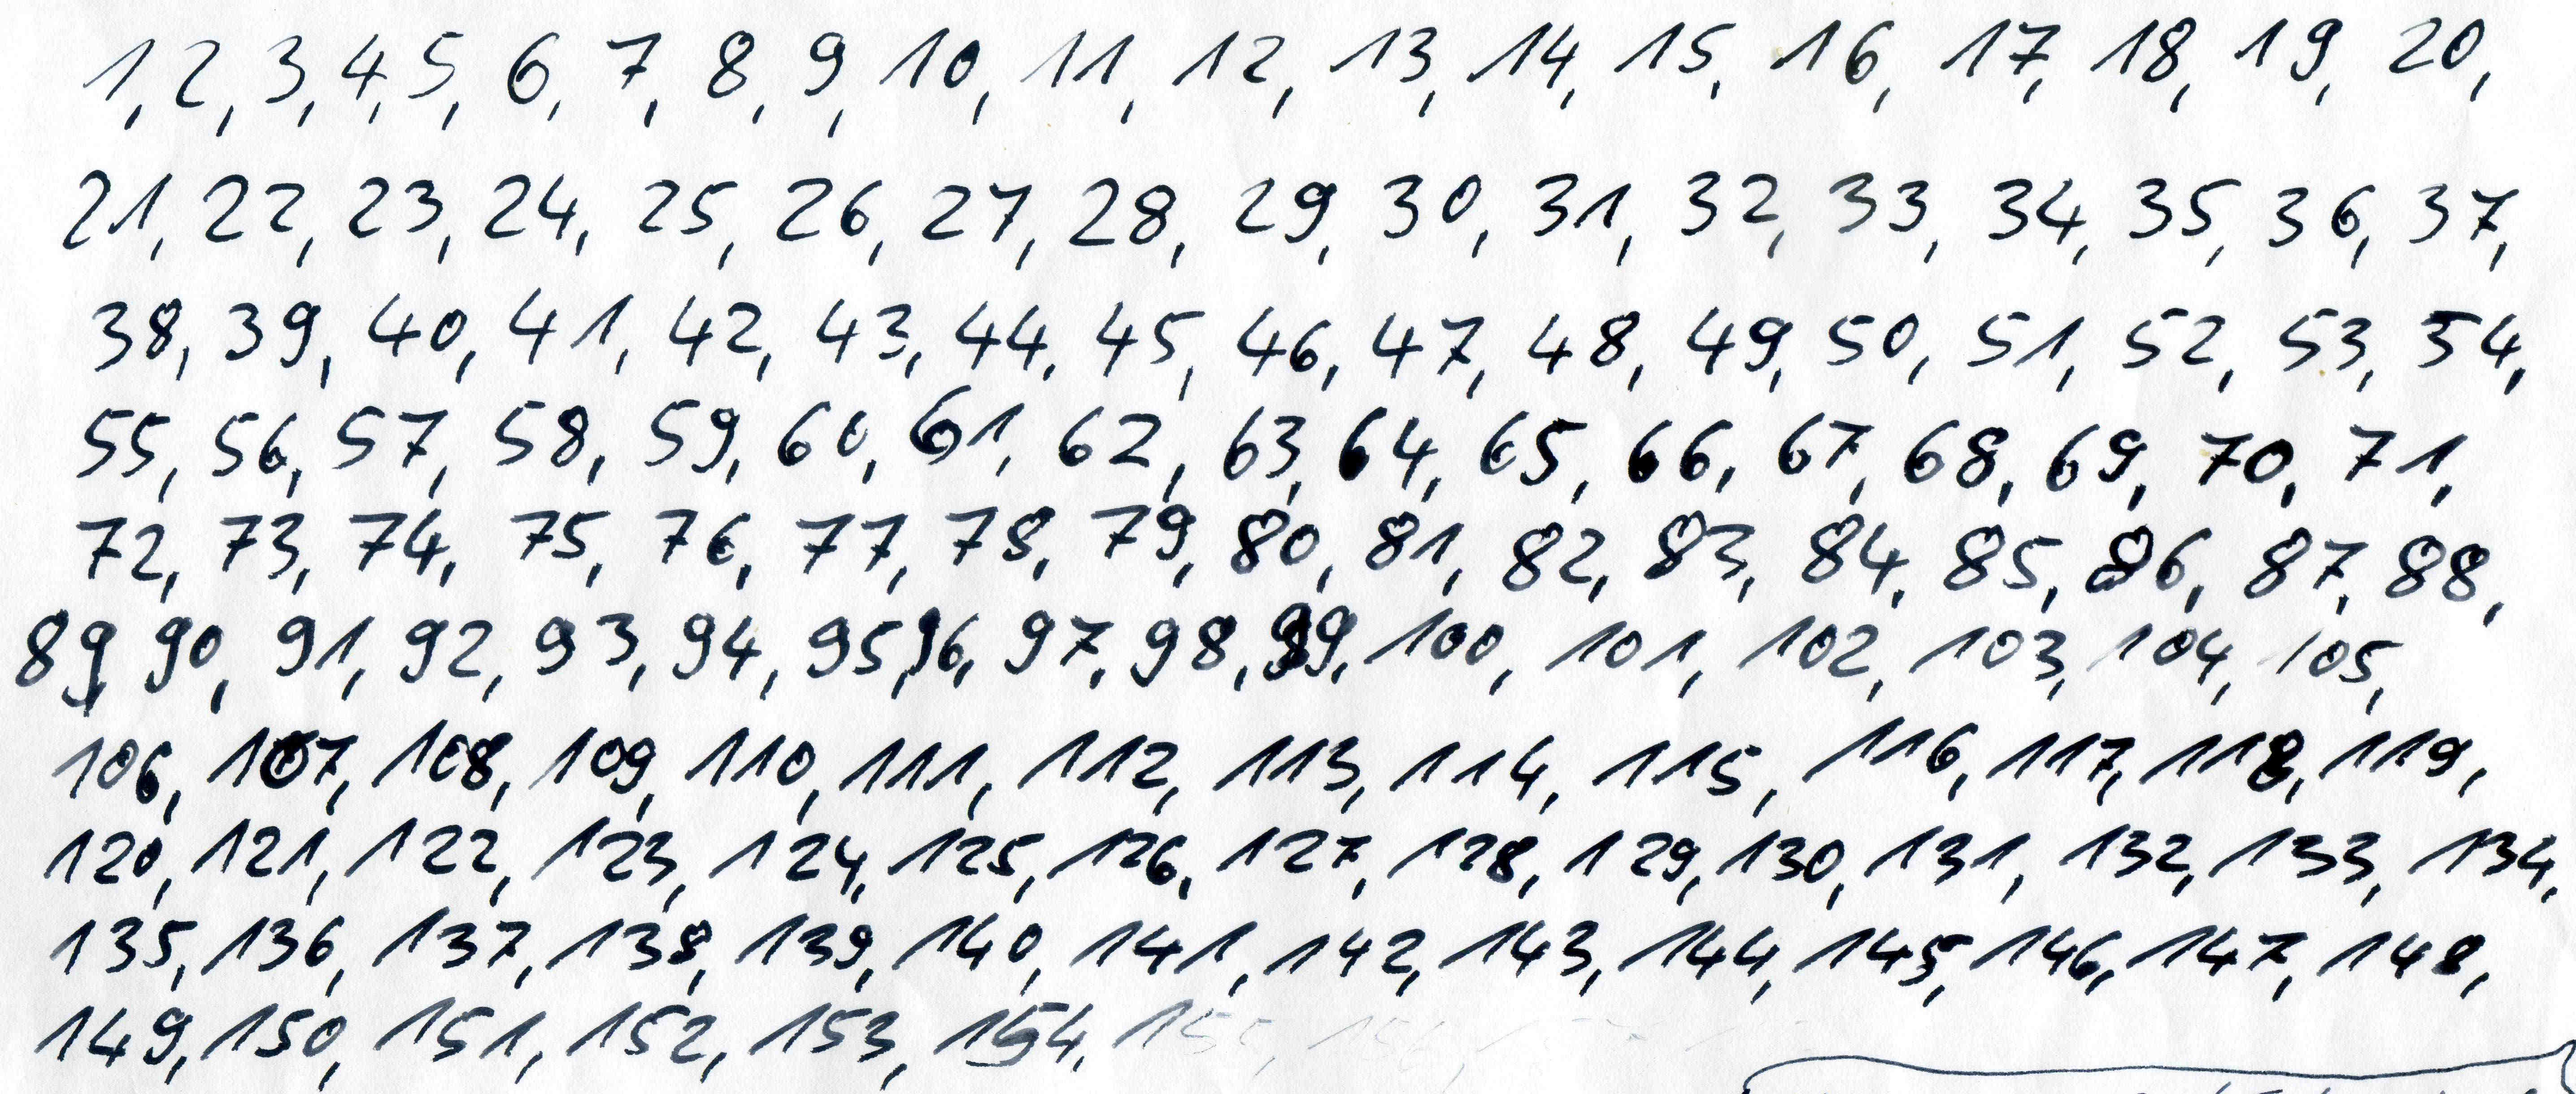 1, 2, 3, 4, 5, 6, 7, 8, 9, 10, 11, 12, 13, 14, 15, 16, 17, 18, 19, 20,
21, 22, 23, 24, 25, 26, 27, 28, 29, 30, 31, 32, 33, 34, 35, 36, 37,
38, 39, 40, 41, 42, 43, 44, 45, 46, 47, 48, 49, 50, 51, 52, 53, 54,
55, 56, 57, 58, 59, 60, 61, 62, 63, 64, 65, 66, 67, 68, 69, 70, 71,
72, 73, 74, 75, 76, 77, 78, 79, 80, 81, 82, 83, 84, 85, 86, 87, 88,
89, 90, 91, 92, 93, 94, 95, 96, 97, 98, 99, 100, 101, 102, 103, 104, 105,
106, 107, 108, 109, 110, 111, 112, 113, 114, 115, 116, 117, 118, 119,
120, 121, 122, 123, 124, 125, 126, 127, 128, 129, 130, 131, 132, 133, 134,
135, 136, 137, 138, 139, 140, 141, 142, 143, 144, 145, 146, 147, 148,
149, 150, 151, 152, 153, 154, 155, 156,